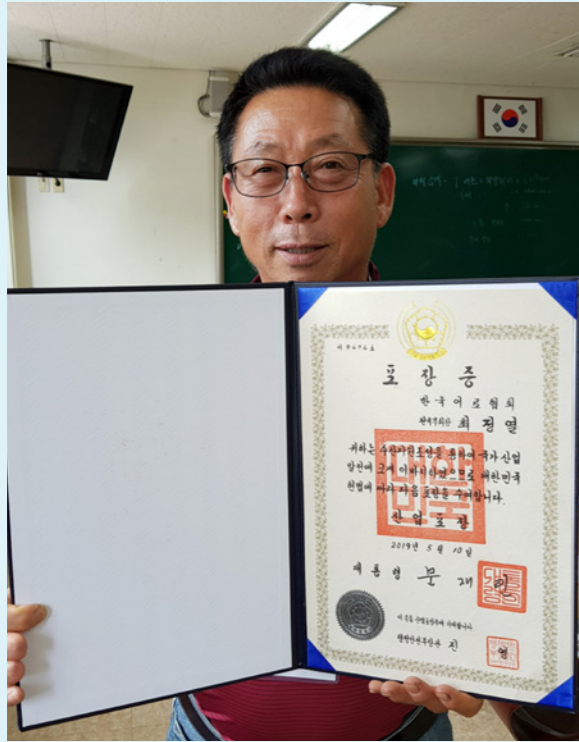 포장증
한국어로협회
최정열
귀하는 수산자원조성을 통하여 국가 산업
발전에 크게 이바지하였으므로 대한민국
헌법에 따라 다음 포장을 수여합니다.
산업포장
2019년 5월 10일
대통령 문재인
이 증을 산업포장부에 기재합니다
행정안전부장관 진 영